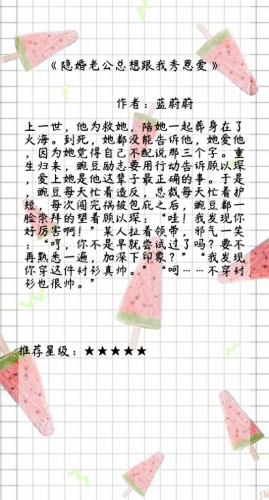 《隐婚老公总想跟我秀恩爱》
作者：蓝蔚蔚
上一世，他为救她，陪她一起葬身在了
火海。到死，她都没能告诉他，她爱他
，因为她觉得自己不配说那三个字。重
生归来，豌豆励志要用行动告诉顾以
琛，爱上她是他这辈子最正确的事。于是
，豌豆每天忙着造反，总裁每天忙着护
短，每次闯完祸被包庇之后，豌豆都一
脸崇拜的望着顾以琛：“哇！我发现你
好厉害啊！”某人扯着领带，邪气一笑
：“哼，你不是早就尝试过了吗？要不
再熟悉一遍，加深下印象？”“我发现
你穿这件衬衫真帅。”“呵……不穿衬
衫也很帅。”
推荐星级：★★★★★